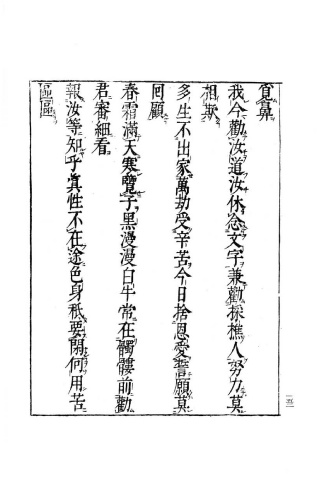 覓鼻
我今勸汝道汝休念文字兼勸採樵人努力莫
相欺
多生不出家萬劫受辛苦今日捨恩愛誓願莫
回顧
春霜滿天寒覽子黑漫漫白牛常在髑髏前勸
君審細看
報汝等知乎真性不在途色身秖要閑何用苦
區區